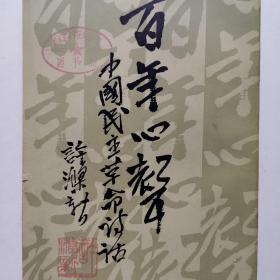 百年心声
中国民主革命诗话
许涤新